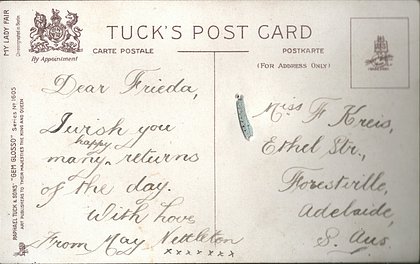 MY LADY FAIR
Chromographed in Berlin
RAPHAEL TUCK & SONS' "GEM GLOSSO" Series No 1605
ART PUBLISHERS TO THEIR MAJESTIES THE KING AND QUEEN
By Appointment
TUCK'S POST CARD
CARTE POSTALE
POSTKARTE
(FOR ADDRESS ONLY)
Dear Frieda,
I wish you
happy
many returns
of the day.
With love
From May Nettleton
x x x x x x x
Miss F Kreis,
Ethel Str.,
Forestville,
Adelaide,
S. Aus.